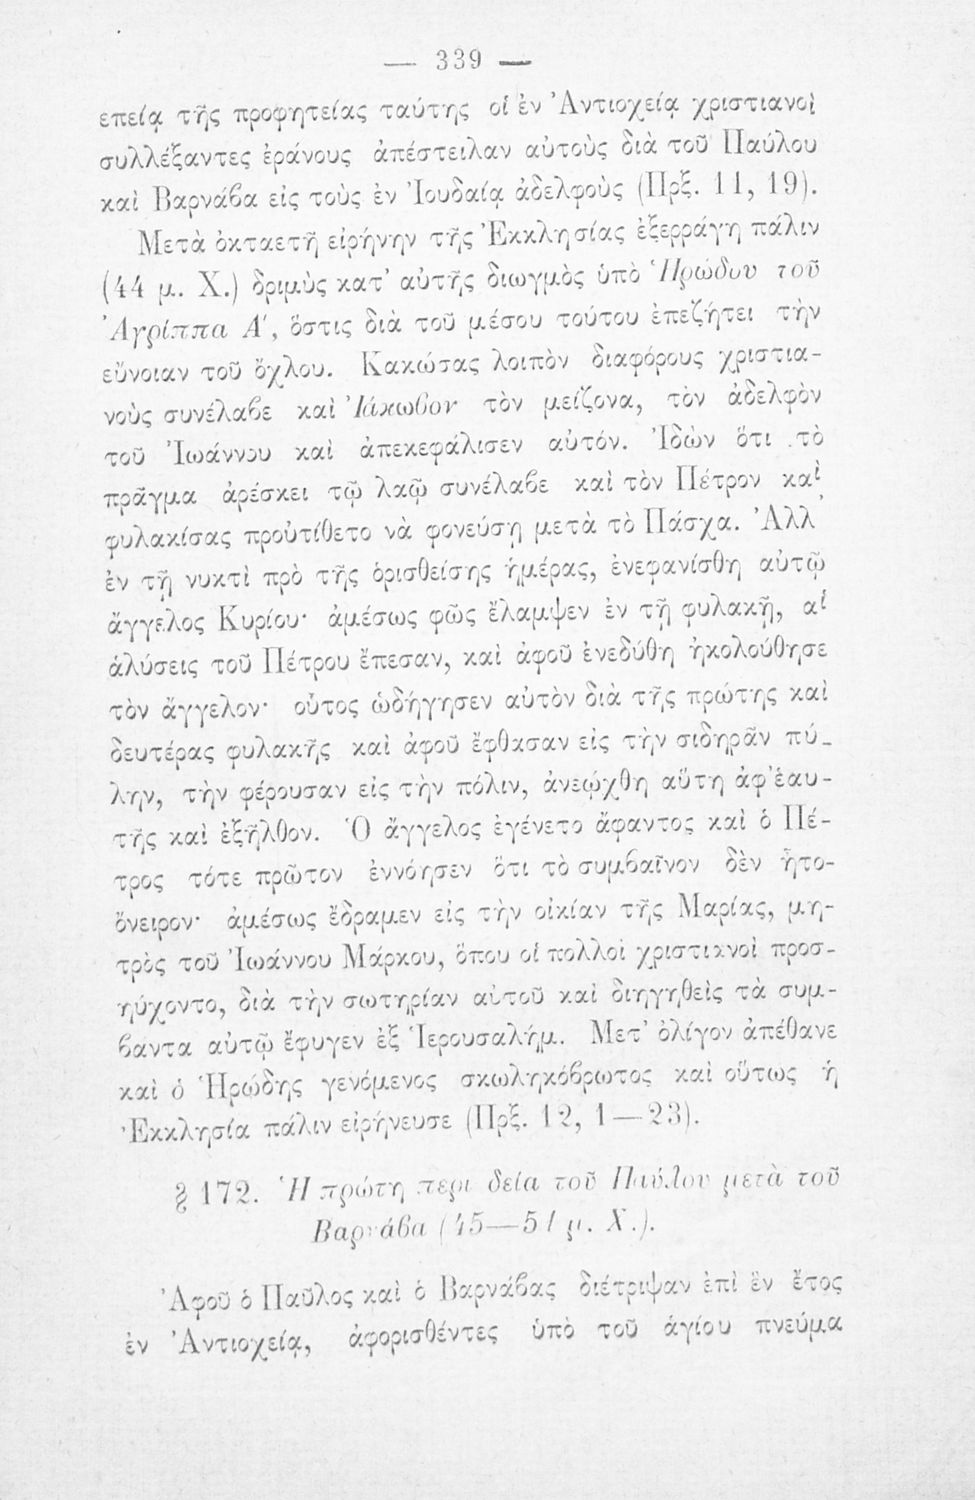 — 339 —
επείᾳ τῆς προφητείας ταύτης οἱ ἐν Ἀντιοχείᾳ χριστιανοὶ
συλλέξαντες ἐράνους ἀπέστειλαν αὐτοὺς διὰ τοῦ Παύλου
καὶ Βαρνάβα εἰς τοὺς ἐν Ἰουδαίᾳ ἀδελφοὺς (Πρξ. 11, 19).
Μετὰ ὀκταετῆ εἰρήνην τῆς Ἐκκλησίας ἐξερράγη πάλιν
(44 μ. Χ.) δριμὺς κατ' αὐτῆς διωγμὸς ὑπὸ Ἡρώδου τοῦ
Ἀγρίππα Α', ὅστις διὰ τοῦ μέσου τούτου ἐπεζήτει τὴν
εὔνοιαν τοῦ ὄχλου. Κακώσας λοιπὸν διαφόρους χριστια-
νοὺς συνέλαβε καὶ Ἰάκωβον τὸν μείζονα, τὸν ἀδελφὸν
τοῦ Ἰωάννου καὶ ἀπεκεφάλισεν αὐτόν. Ἰδὼν ὅτι τὸ
πρᾶγμα ἀρέσκει τῷ λαῷ συνέλαβε καὶ τὸν Πέτρον καὶ
φυλακίσας προὐτίθετο νὰ φονεύσῃ μετὰ τὸ Πάσχα. Ἀλλ'
ἐν τῇ νυκτὶ πρὸ τῆς ὁρισθείσης ἡμέρας, ἐνεφανίσθη αὐτῷ
ἄγγελος Κυρίου· ἀμέσως φῶς ἔλαμψεν ἐν τῇ φυλακῇ, αἱ
ἁλύσεις τοῦ Πέτρου ἔπεσαν, καὶ ἀφοῦ ἐνεδύθη ἠκολούθησε
τὸν ἄγγελον· οὗτος ὡδήγησεν αὐτὸν διὰ τῆς πρώτης καὶ
δευτέρας φυλακῆς καὶ ἀφοῦ ἔφθασαν εἰς τὴν σιδηρᾶν πύ-
λην, τὴν φέρουσαν εἰς τὴν πόλιν, ἀνεῴχθη αὕτη ἀφ'ἑαυ-
τῆς καὶ ἐξῆλθον. Ὁ ἄγγελος ἐγένετο ἄφαντος καὶ ὁ Πέ-
τρος τότε πρῶτον ἐννόησεν ὅτι τὸ συμβαῖνον δὲν ἦτο-
ὄνειρον· ἀμέσως ἔδραμεν εἰς τὴν οἰκίαν τῆς Μαρίας, μη-
τρὸς τοῦ Ἰωάννου Μάρκου, ὅπου οἱ πολλοὶ χριστιανοὶ προσ-
ηύχοντο, διὰ τὴν σωτηρίαν αὐτοῦ καὶ διηγηθεὶς τὰ συμ-
βαντα αὐτῷ ἔφυγεν ἐξ Ἱερουσαλήμ. Μετ' ὀλίγον ἀπέθανε
καὶ ὁ Ἡρώδης γενόμενος σκωληκόβρωτος καὶ οὕτως ἡ
Ἐκκλησία πάλιν εἰρήνευσε (Πρξ. 12, 1—23).
§ 172. Ἡ πρώτη περιοδεία τοῦ Παύλου μετὰ τοῦ
Βαρνάβα (45—51 μ. Χ.).
Ἀφοῦ ὁ Παῦλος καὶ ὁ Βαρνάβας διέτριψαν ἐπὶ ἓν ἔτος
ἐν Ἀντιοχείᾳ, ἀφορισθέντες ὑπὸ τοῦ ἁγίου πνεύμα